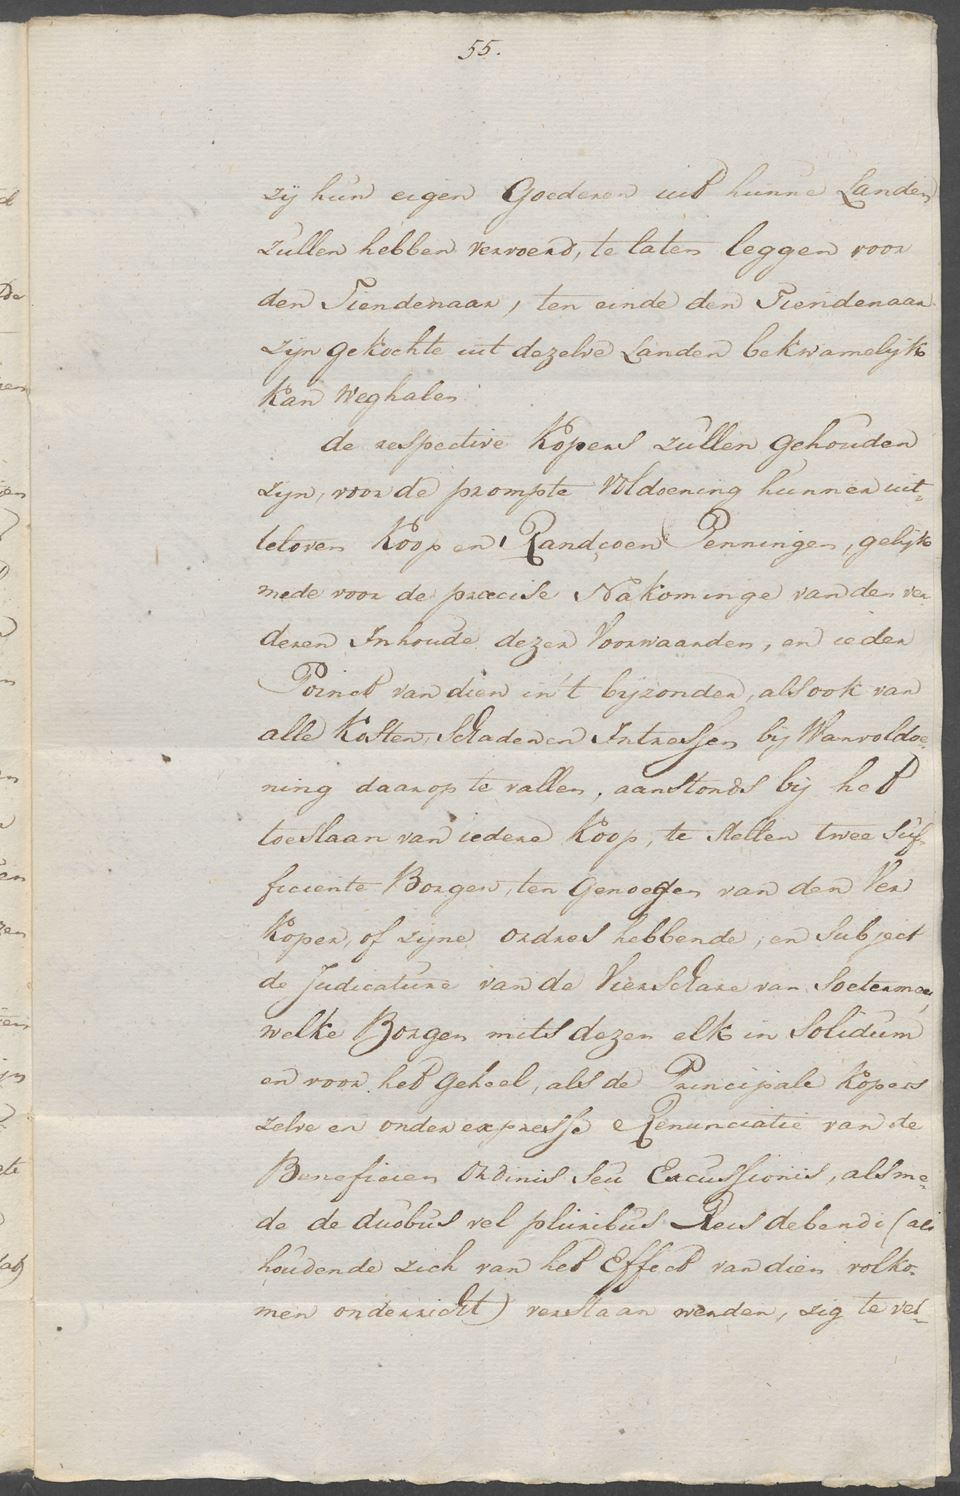 55.
zij hun eigen Goederen uit hunne Landen
zullen hebben vervoerd, te laten leggen voor
den Tiendenaar, ten einde den Tiendenaar
zijn gekochte uit dezelve Landen bekwamelijk
kan weghalen.
de respective Kopers zullen gehouden
zijn, voor de prompte voldoening hunner uit-
teloven Koop en Randçoen Penningen, gelijk
mede voor de præcise Nakominge van den ver
deren Inhoude dezer Voorwaarden, en ieder
Poinct van dien in 't bijzonder, als ook van
alle Kosten, Schaden en Intressen bij Wanvoldoe-
ning daarop te vallen, aanstonds bij het
toeslaan van iedere Koop, te stellen twee suf-
ficiente Borgen, ten Genoegen van den Ver
Koper, of zijne ordres hebbende, en subject
de Judicature van de Vierschare van Soetermeer,
welke Borgen mits dezen elk in Solidum
en voor het geheel, als de Principale Kopers
zelve en onder expresse Renunciatie van de
Beneficien Ordinis seu Excussionis, alsme-
de de duobus vel pluribus Reis debendi (als
houdende zich van het Effect van dien volko-
men onderricht) verstaan werden, zig te ver-